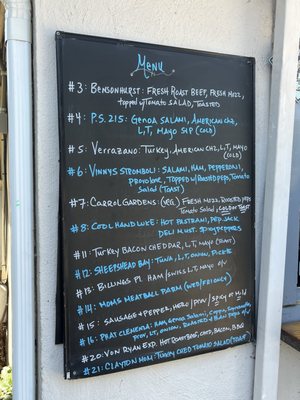 Menu
#3: BENSONHURST: FRESH ROAST BEEF, FRESH MOZZ,
topped w/ TOMATO SALAD, TOASTED
#4: P.S. 215: GENOA SALAMI, AMERICAN CHZ,
L,T, MAYO S&P (COLD)
#5: VERRAZANO: TURKEY, AMERICAN CHZ, L,T, MAYO
(COLD)
#6: VINNYS STROMBOLI: SALAMI, HAM, PEPPERONI
PROVOLONE, TOPPED W/ ROASTED PEPS, TOMATO
SALAD (TOAST)
#7: CARROL GARDENS: (VEG) FRESH MOZZ, ROASTED PEPS
TOMATO SALAD, COLD OR TOAST
#8: COOL HAND LUKE: HOT PASTRAMI, PEP. JACK
DELI MUST. SPICY PEPPERS
#11: TURKEY BACON CHEDDAR, L,T, MAYO (TOAST)
#12: SHEEPSHEAD BAY: TUNA, L,T, ONION, PICKLE
#13: BILLINGS PL. HAM, SWISS L,T MAYO
#14: MOMS MEATBALL PARM (WED/FRI ONLY)
#15: SAUSAGE & PEPPER, HERO/
#16: PHAT CLEMENZA: HAM, GENOA SALAMI, CAPPY, SOPRESSATA,
PROV, L,T, ONION, ROASTED & 
#20: VON RYAN EXP. HOT ROASTBEEF, CHED, BACON, BBQ
#21: CLAYTON MOM: TURKEY CHED TOMATO SALAD (TOAST)